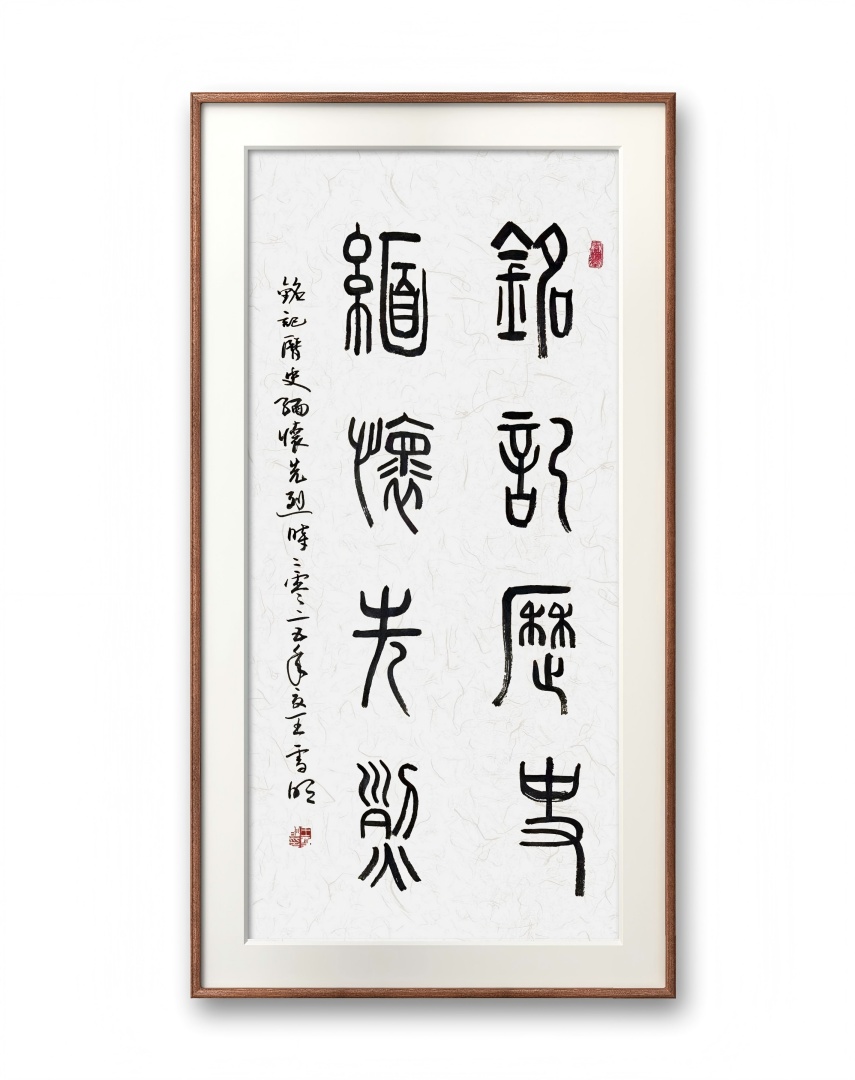 銘記歷史
緬懷先烈
銘記歷史緬懷先烈時二零二五年夏王雪明